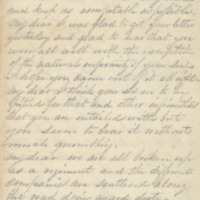 and keep as comfortable as possible,
my dear I was glad to get your letter
yesterday and glad to hear that you
were all well with the exception
of the natural infirmity of your
I hope you name will it all
my dear I think you are to be
pitied for that and other infirmities
that you are with but
you seem to bear it without
much grumbling.
my dear we are all broken up
as a regiment and the different
companies are scattered along
the road doing guard duty